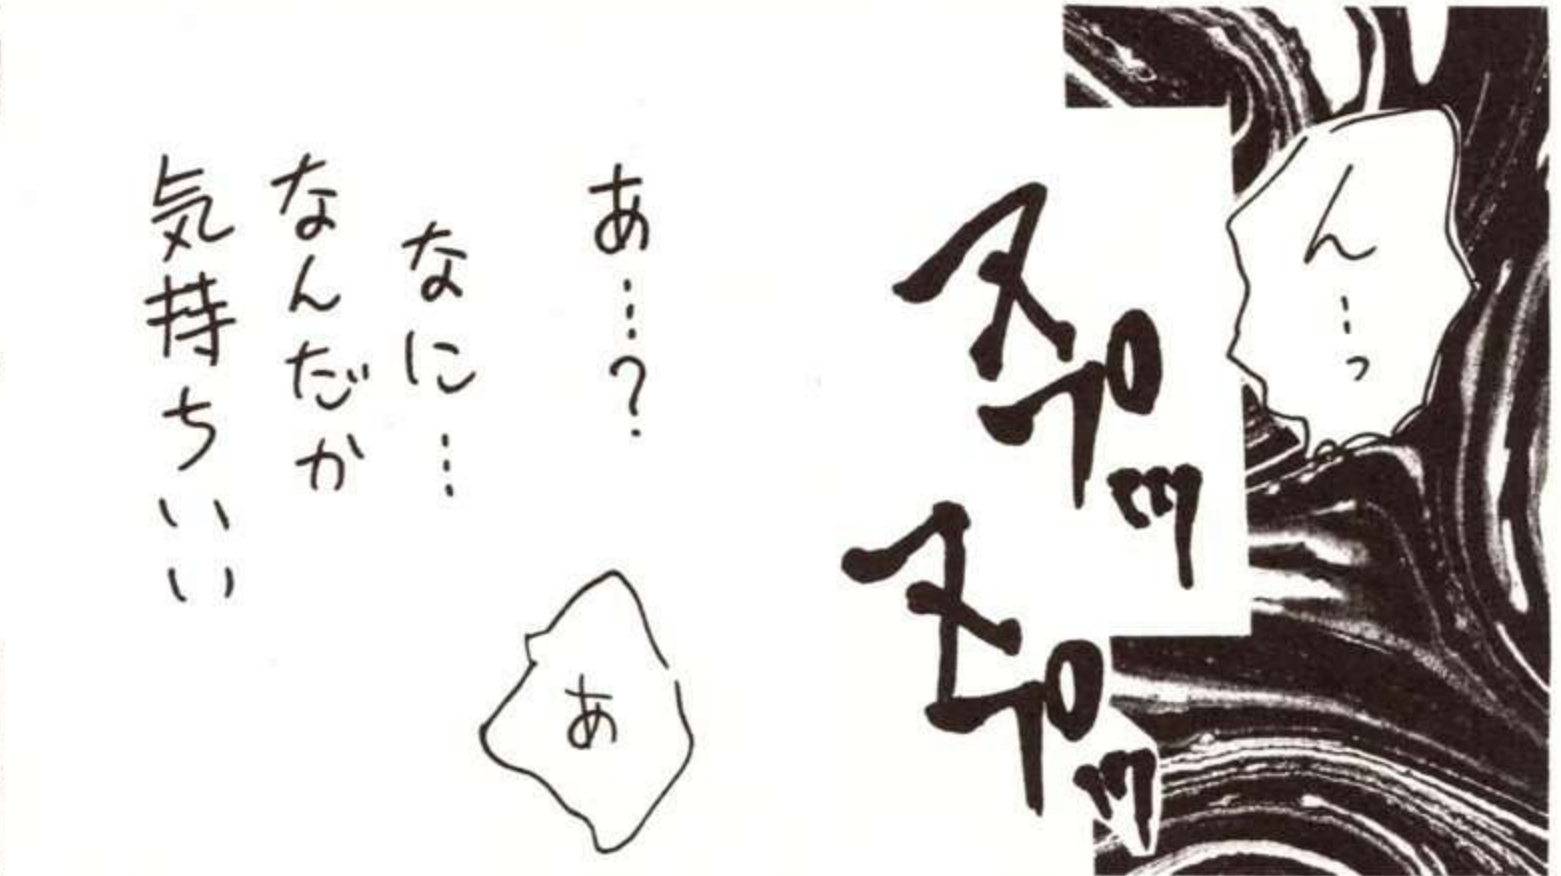 ん…っ
ズプッ
ズプッ
あ…?
あ
なに…
なんだか
気持ちいい